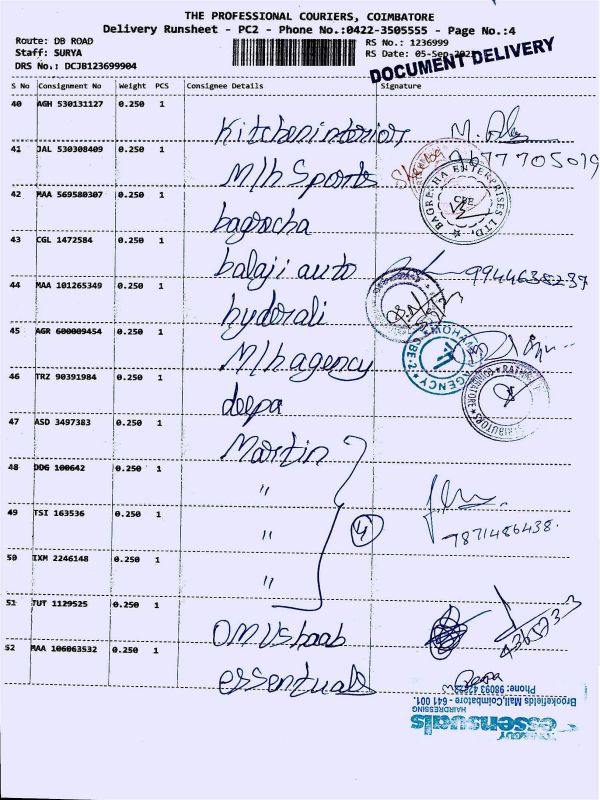 THE PROFESSIONAL COURIERS, COIMBATORE
Delivery Runsheet - PC2 - Phone No.:0422-3505555 - Page No.:4
Route: DB ROAD
Staff: SURYA
DRS No.: DCJB123699904
RS No.: 1236999
RS Date: 05-Sep-
DOCUMENT DELIVERY
S No Consignment No Weight PCS Consignee Details Signature
40 AGH 530131127 0.250 1
Kitcheninterior M.
41 JAL 530308409 0.250 1
M/h Sports 9677705019
42 MAA 569580307 0.250 1
bagrecha
BAGRESHA ENTERPRISES LTD.
CBE
43 CGL 1472584 0.250 1
balaji auto 9944638239
44 MAA 101265349 0.250 1
hyderali
45 AGR 600009454 0.250 1
M/h agency
AGENCY CBE-2
46 TRZ 90391984 0.250 1
deepa
47 ASD 3497383 0.250 1
Martin
48 DDG 100642 0.250 1
"
49 TSI 163536 0.250 1
" 4 7871486438.
50 IXM 2246148 0.250 1
"
51 TUT 1129525 0.250 1
OM Vshaab
52 MAA 106063532 0.250 1
essentuals
essensuals
HAIRDRESSING
Brookefields Mall, Coimbatore - 641 001.